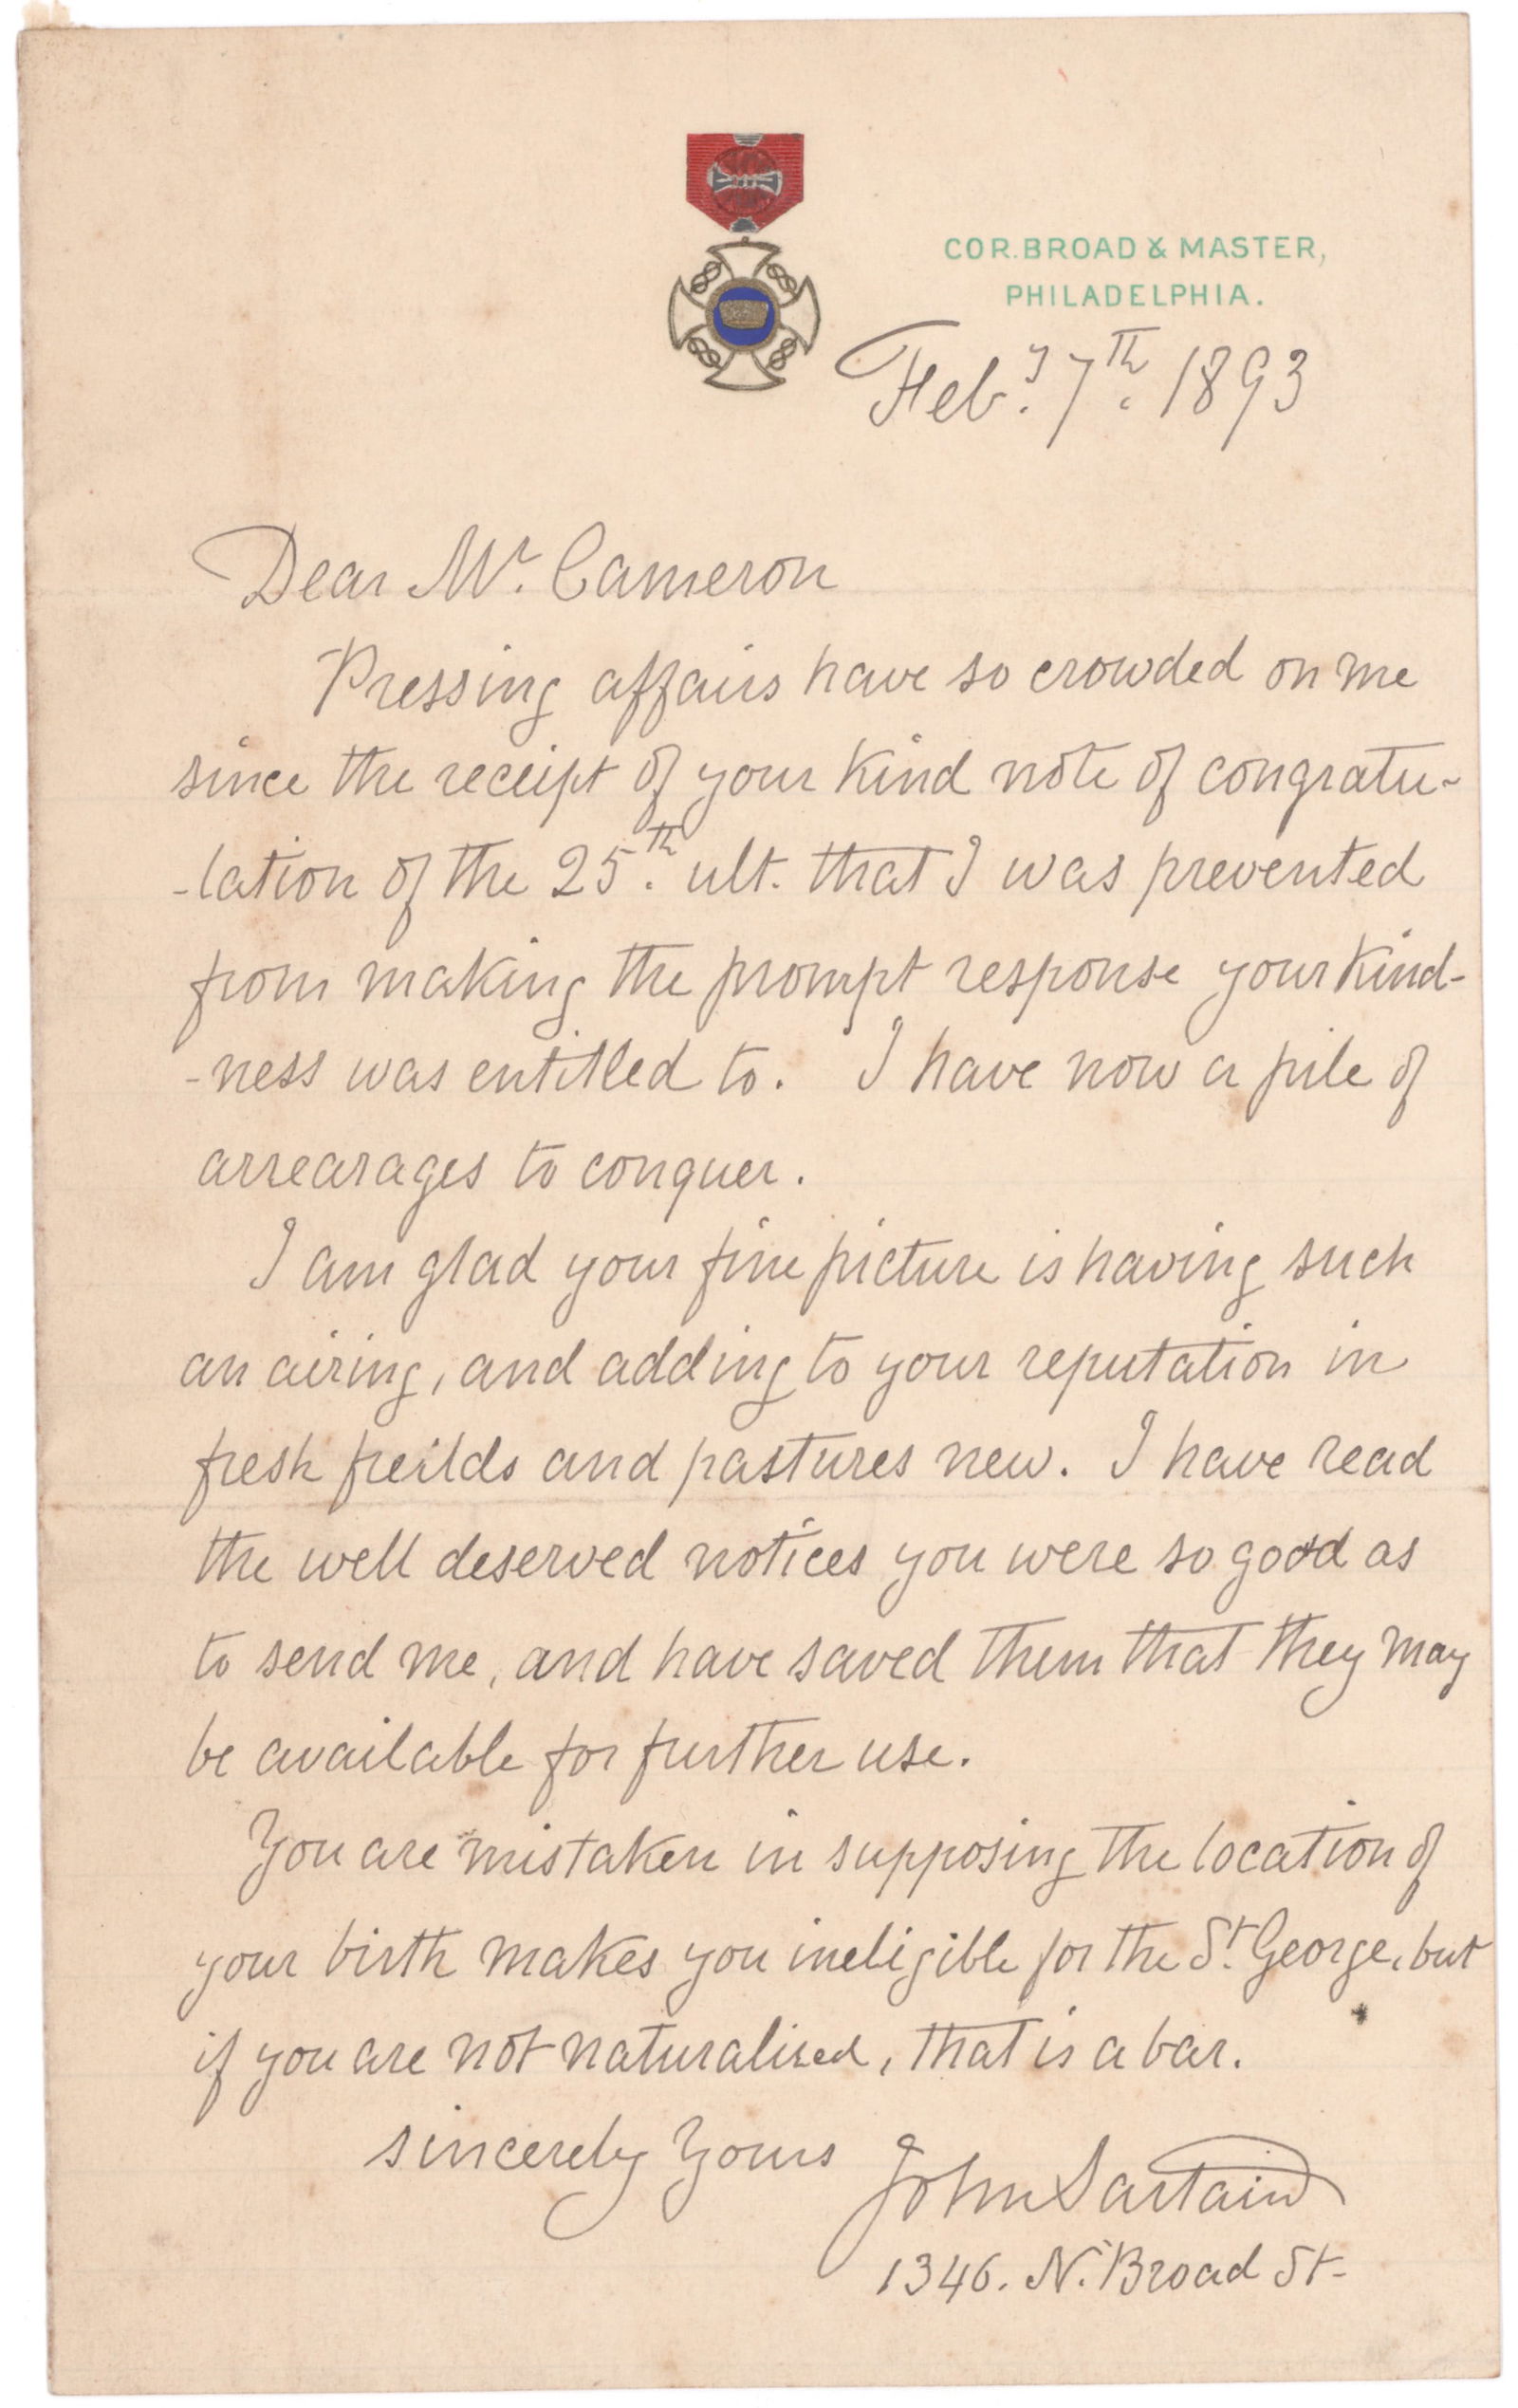 COR. BROAD & MASTER,
PHILADELPHIA.
Feby. 7th. 1893
Dear Mr. Cameron
Pressing affairs have so crowded on me
since the receipt of your kind note of congratu-
-lation of the 25th. ult. that I was prevented
from making the prompt response your kind-
-ness was entitled to. I have now a pile of
arrearages to conquer.
I am glad your fine picture is having such
an airing, and adding to your reputation in
fresh feilds and pastures new. I have read
the well deserved notices you were so good as
to send me, and have saved them that they may
be available for further use.
You are mistaken in supposing the location of
your birth makes you ineligible for the St. George, but
if you are not naturalized, that is a bar.
sincerely Yours
John Sartain
1346. N. Broad St-